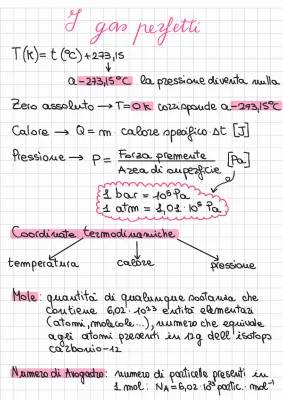 I gas perfetti
T(k) = t(°C) + 273,15
a -273,15°C la pressione diventa nulla
Zero assoluto → T=0k corrisponde a -273,15°C
Calore → Q = m calore specifico Δt [J]
Pressione → P = Forza premente / Area di superficie [Pa]
1 bar = 10⁵ Pa
1 atm = 1,01 · 10⁵ Pa
Coordinate termodinamiche
temperatura calore pressione
Mole: quantità di qualunque sostanza che
contiene 6,02 · 10²³ entità elementari
(atomi, molecole...), numero che equivale
agli atomi presenti in 12g dell'isotopo
carbonio-12
Numero di Avogadro: numero di particelle presenti in
1 mol: NA = 6,02 · 10²³ partic. · mol⁻¹